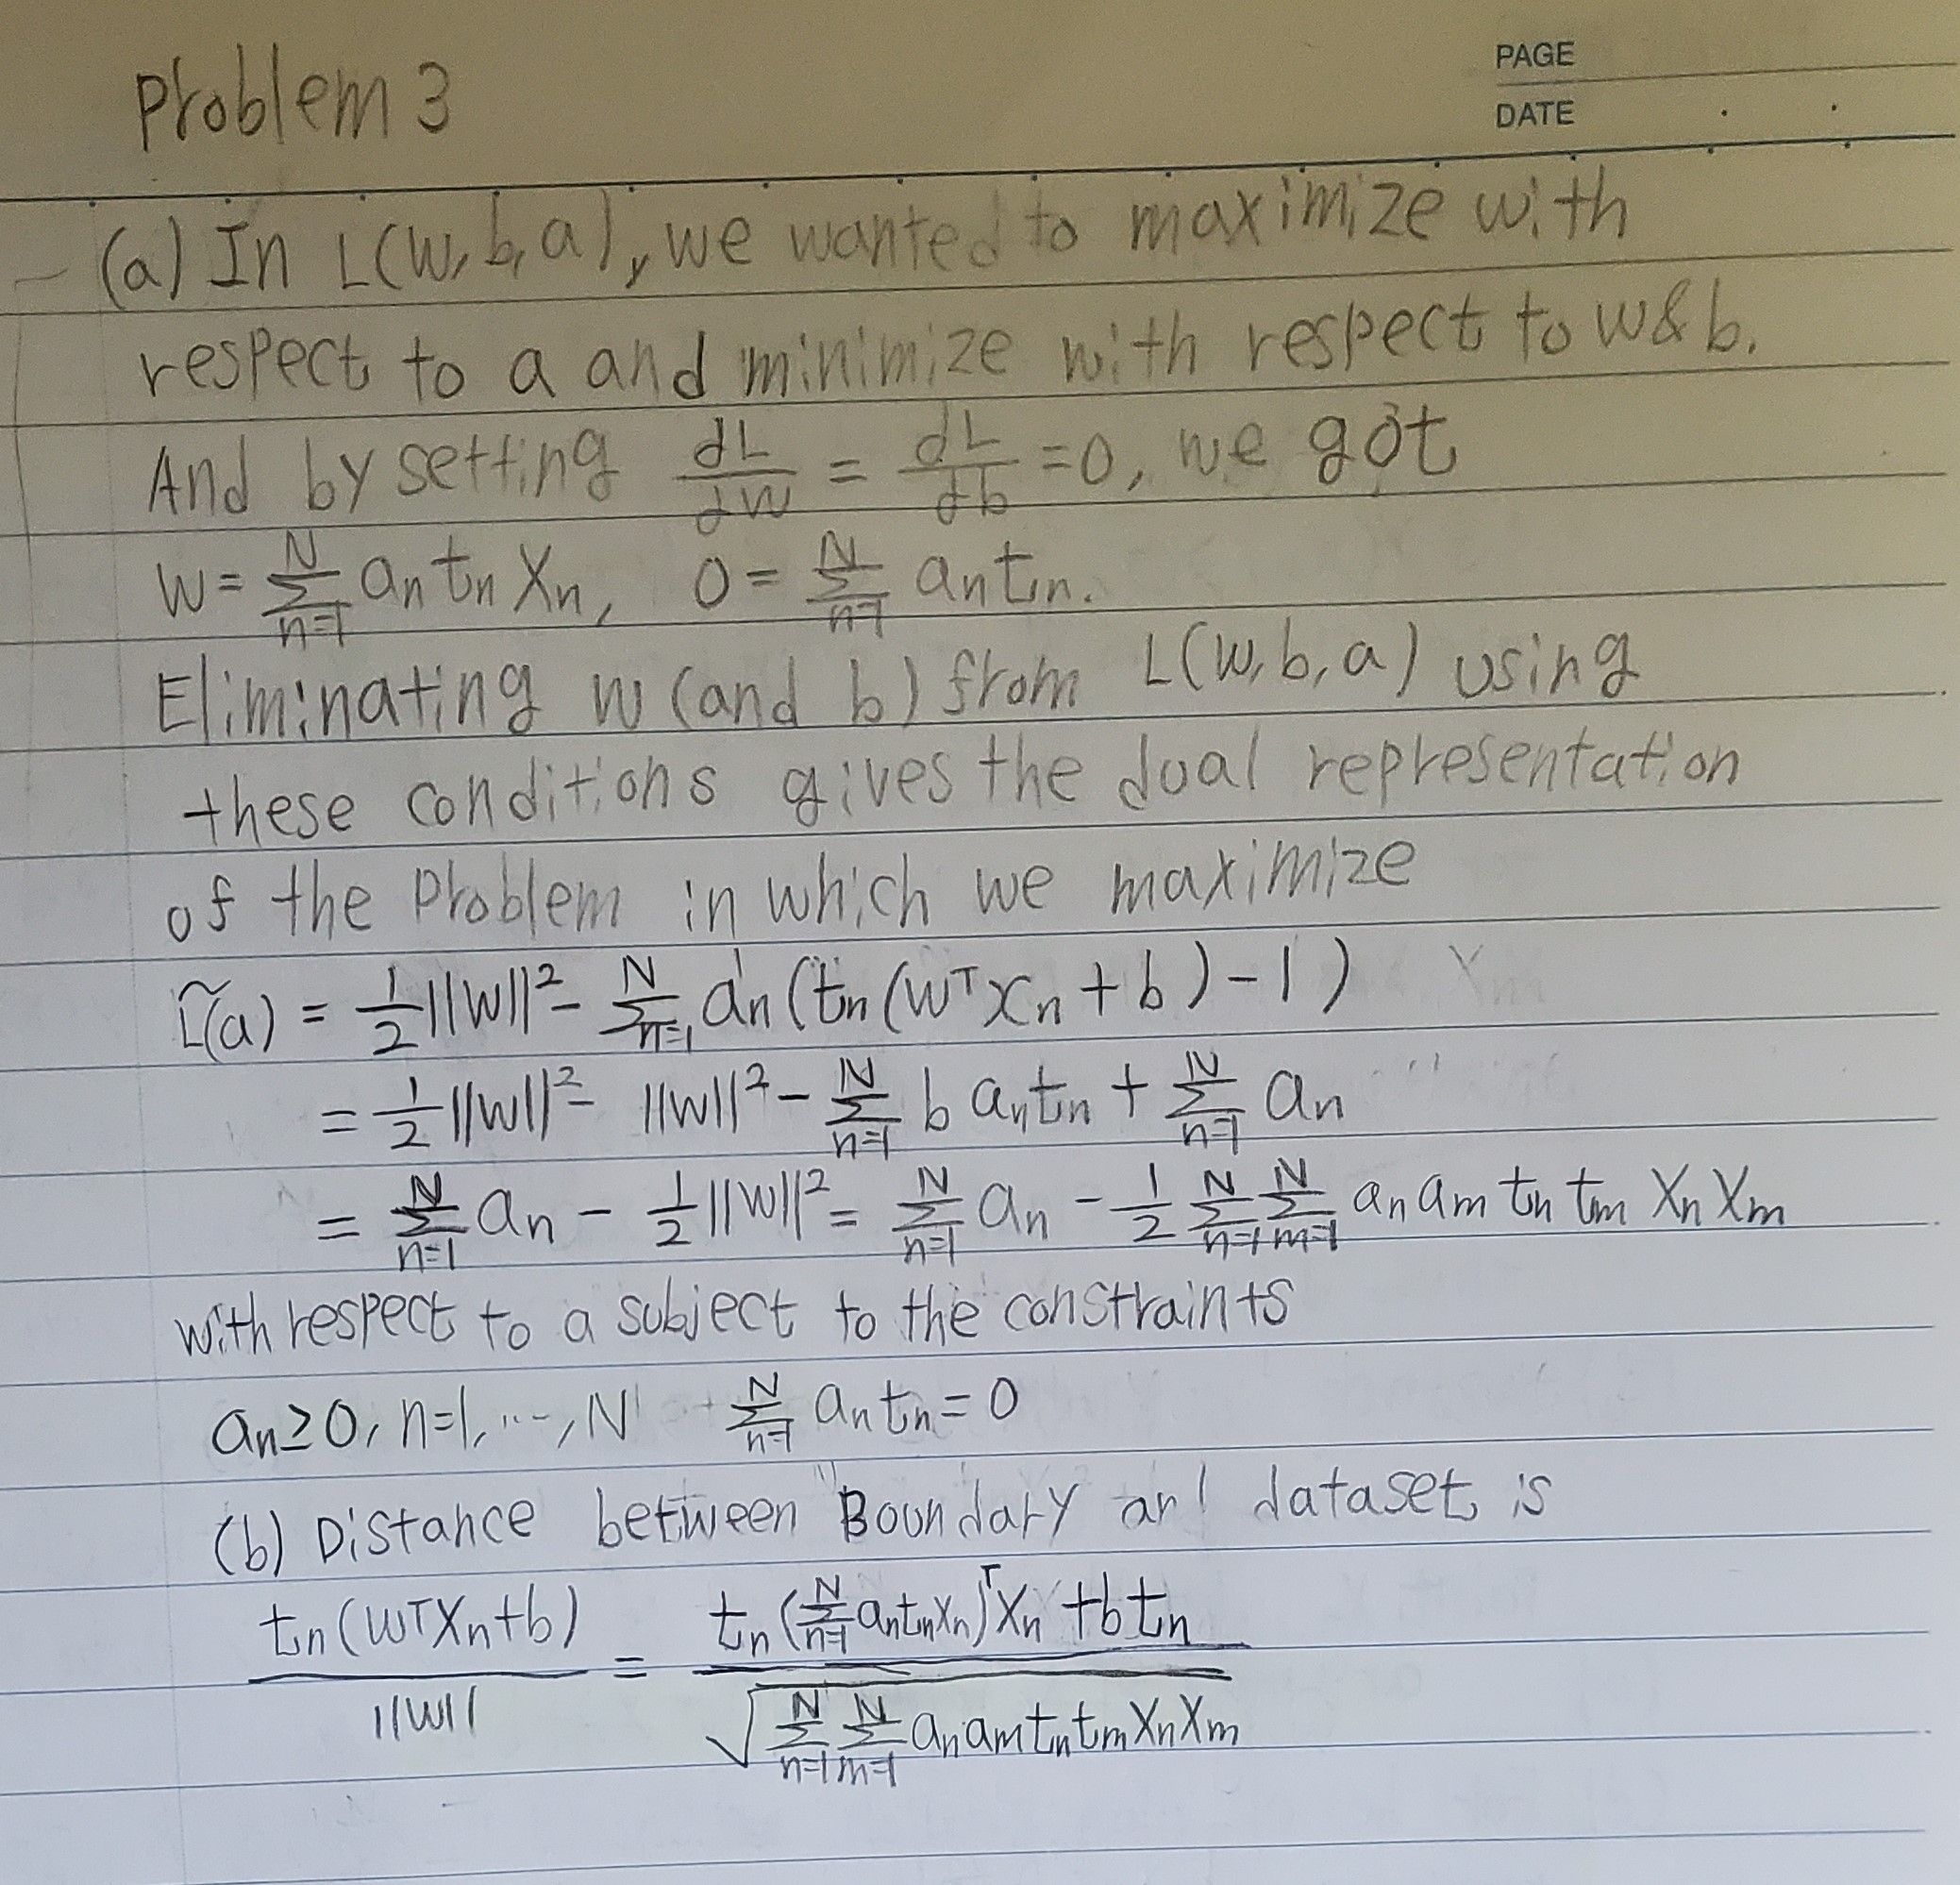 Problem 3
PAGE
DATE
(a) In L(w, b, a), we wanted to maximize with
respect to a and minimize with respect to w & b.
And by setting dL/dw = dL/db = 0, we got
w = Σ_{n=1}^{N} a_n t_n x_n, 0 = Σ_{n=1}^{N} a_n t_n.
Eliminating w (and b) from L(w, b, a) using
these conditions gives the dual representation
of the problem in which we maximize
L̃(a) = 1/2 ||w||² - Σ_{n=1}^{N} a_n (t_n (w^T x_n + b) - 1)
= 1/2 ||w||² - ||w||² - Σ_{n=1}^{N} b a_n t_n + Σ_{n=1}^{N} a_n
= Σ_{n=1}^{N} a_n - 1/2 ||w||² = Σ_{n=1}^{N} a_n - 1/2 Σ_{n=1}^{N} Σ_{m=1}^{N} a_n a_m t_n t_m x_n x_m
with respect to a subject to the constraints
a_n ≥ 0, n=1, ..., N Σ_{n=1}^{N} a_n t_n = 0
(b) Distance between Boundary and dataset is
t_n (w^T x_n + b) / ||w|| = (t_n (Σ_{n=1}^{N} a_n t_n x_n)^T x_n + b t_n) / √(Σ_{n=1}^{N} Σ_{m=1}^{N} a_n a_m t_n t_m x_n x_m)